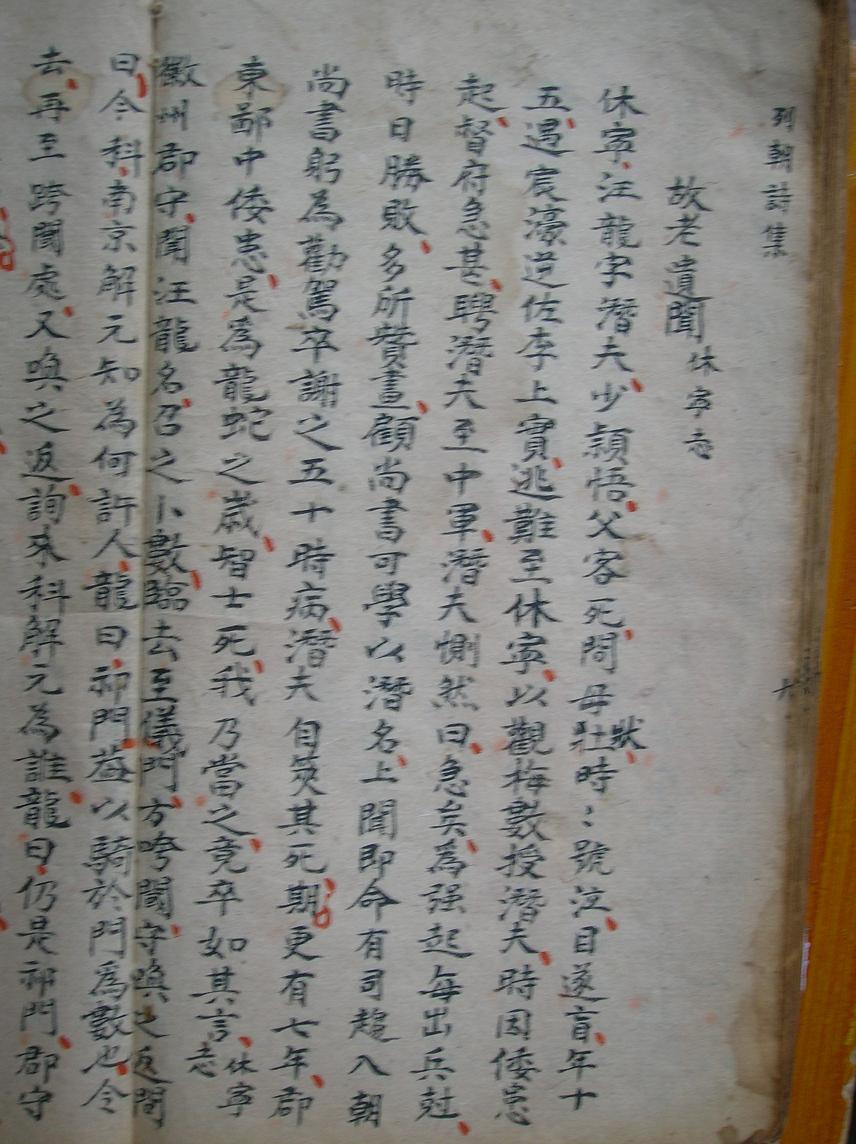 列朝詩集
故老遺聞 休寧志
休寧汪龍字潛夫少頴悟父客死問母狀壯時〻號泣目遂盲年十
五遇宸濠逆佐李上實逃難至休寧以觀梅數授潛夫時因倭患
起督府急甚聘潛夫至中軍潛夫惻然曰急矣為强起每出兵尅
時日勝敗多所贊畫顧尚書可學以潛名上聞即命有司趨入朝
尚書躬為勸駕卒謝之五十時病潛夫自筴其死期更有七年郡
東鄙中倭患是為龍蛇之歲智士死我乃當之竟卒如其言休寧志
徽州郡守聞汪龍名召之卜數臨去至儀門方咵閫守喚之返問
曰今科南京解元知為何許人龍曰祁門葢以騎於門為數也今
去再至跨閫處又喚之返詢來科解元為誰龍曰仍是祁門郡守